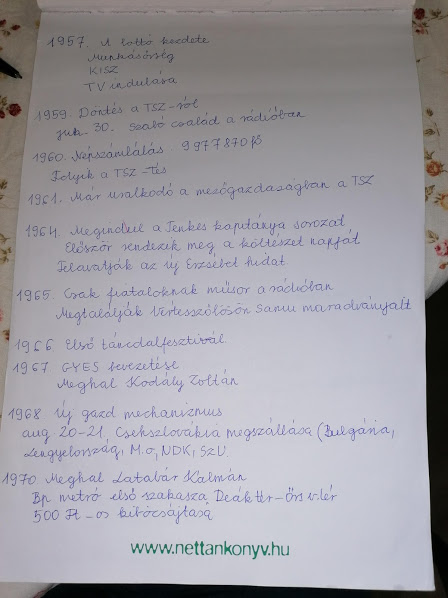 1957. A lottó kezdete
Munkásőrség
KISZ
TV indulása
1959. Döntés a TSZ-ről
jún. 30. Szabó család a rádióban
1960. Népszámlálás 9977870 fő
Folyik a TSZ-tés
1961. Már uralkodó a mezőgazdaságban a TSZ
1964. Megindul a Tenkes kapitánya sorozat
Először rendezik meg a költészet napját
Felavatják az új Erzsébet hidat
1965. Csak fiataloknak műsor a rádióban
Megtalálják Vértesszőlősön Samu maradványait
1966 Első táncdalfesztivál
1967 GYES bevezetése
Meghal Kodály Zoltán
1968 Új gazd mechanizmus
aug 20-21, Csehszlovákia megszállása (Bulgária,
Lengyelország, M.o, NDK, SZU.
1970 Meghal Latabár Kálmán
Bp metró első szakasza Deáktér-Örs v.tér
500 Ft-os kibocsájtása
www.nettankonyv.hu